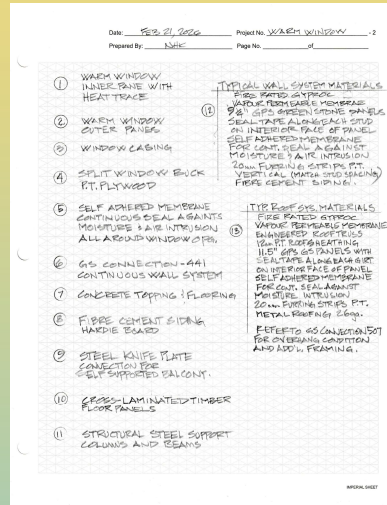 Date: FEB 21, 2026 Project No. WARM WINDOW - 2
Prepared By: NHK Page No. of
① WARM WINDOW
INNER PANE WITH
HEAT TRACE
② WARM WINDOW
OUTER PANES
③ WINDOW CASING
④ SPLIT WINDOW BUCK
P.T. PLYWOOD
⑤ SELF ADHERED MEMBRANE
CONTINUOUS SEAL AGAINTS
MOISTURE & AIR INTRUSION
ALL AROUND WINDOW OPG.
⑥ GS CONNECTION-441
CONTINUOUS WALL SYSTEM
⑦ CONCRETE TOPPING & FLOORING
⑧ FIBRE CEMENT SIDING
HARDIE BOARD
⑨ STEEL KNIFE PLATE
CONECTION FOR
SELF SUPPORTED BALCONY.
⑩ CROSS-LAMINATED TIMBER
FLOOR PANELS
⑪ STRUCTURAL STEEL SUPPORT
COLUMNS AND BEAMS
TYPICAL WALL SYSTEM MATERIALS
FIRE RATED GYPROC
VAPOUR PERMEABLE MEMBRAE
⑫ GPS GREENSTONE PANELS
SEAL TAPE ALONG EACH STUD
ON INTERIOR FACE OF PANEL
SELF ADHERED MEMBRANE
FOR CONT. SEAL AGAINST
MOISTURE & AIR INTRUSION
20mm FURRING STRIPS P.T.
VERTICAL (MATCH STUD SPACING)
FIBRE CEMENT SIDING.
TYP. ROOF SYS. MATERIALS
FIRE RATED GYPROC
VAPOUR PERMEABLE MEMBRANE
⑬ ENGINEERED ROOF TRUSS
12mm P.T. ROOF SHEATHING
11.5" GPS GS PANELS WITH
SEALTAPE ALONG EACH GIRT
ON INTERIOR FACE OF PANEL
SELF ADHERED MEMBRANE
FOR CONT. SEAL AGAINST
MOISTURE INTRUSION
20mm FURRING STRIPS P.T.
METAL ROOFING 26ga.
REFER TO GS CONNECTION 507
FOR OVERHANG CONDITION
AND ADD'L FRAMING.
IMPERIAL SHEET